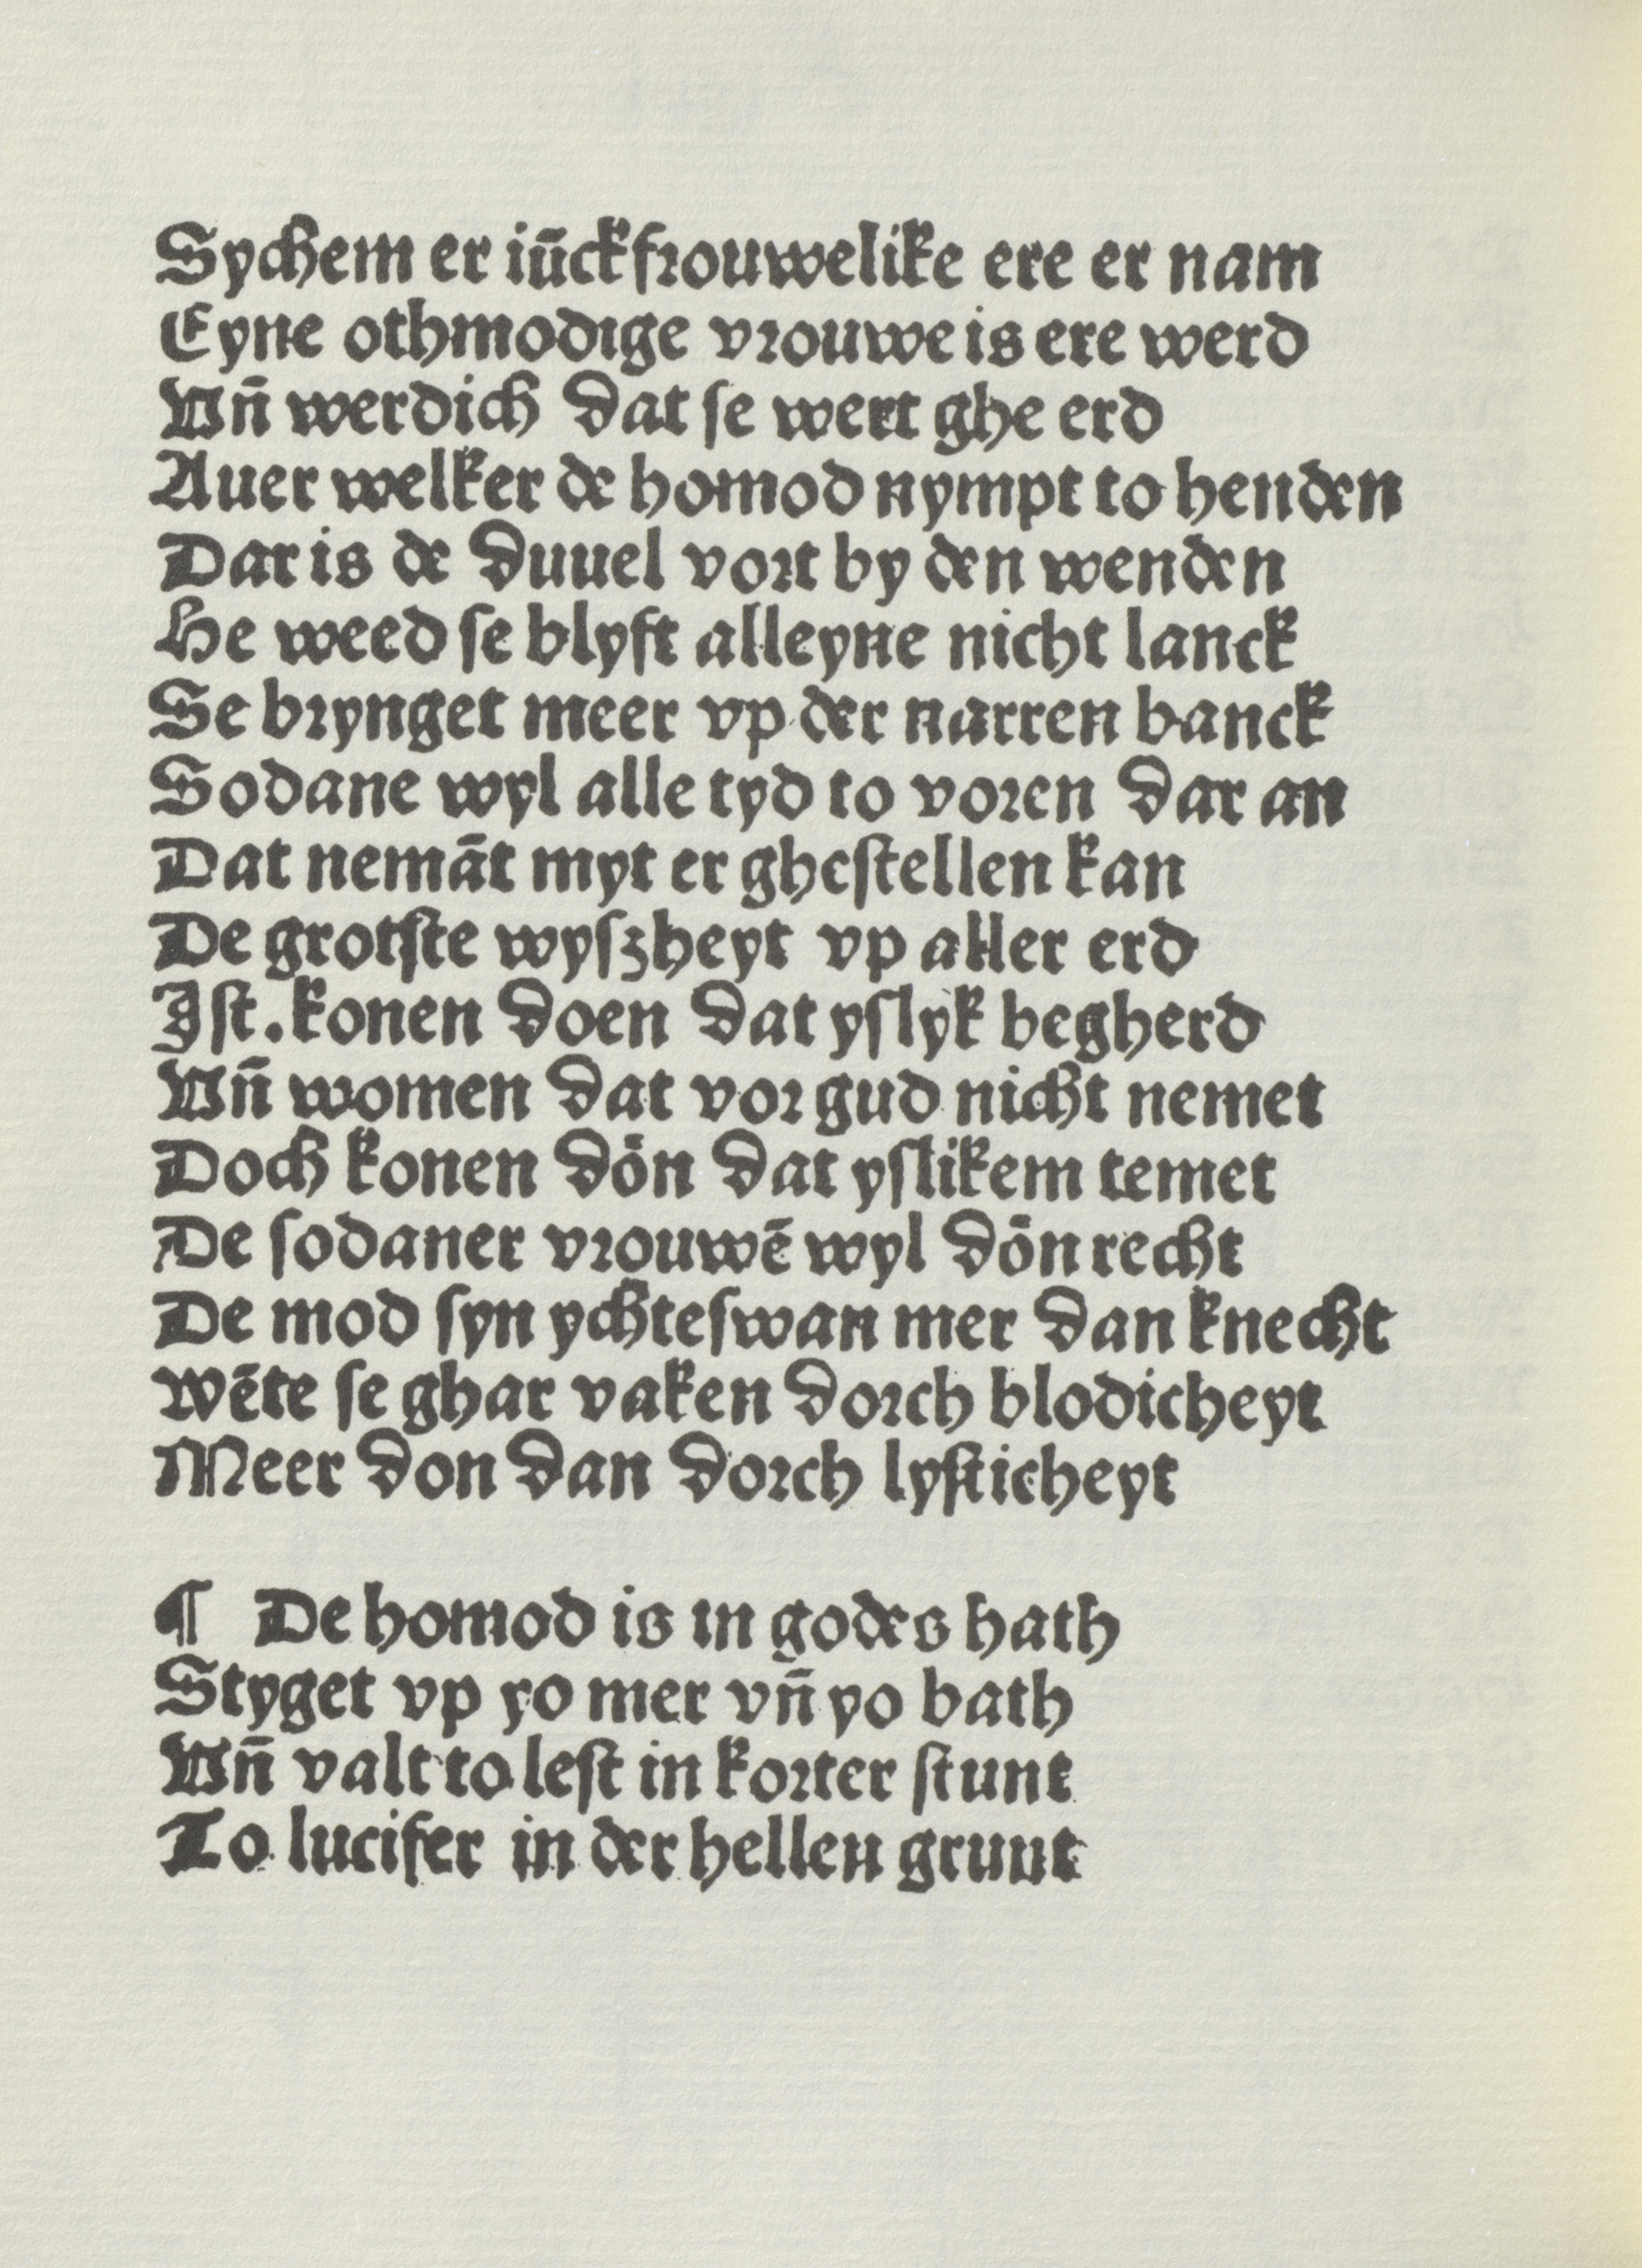 Sychem er iūckfrouwelike ere er nam
Eyne othmodige vrouwe is ere werd
Vn̄ werdich dat se wert ghe erd
Auer welker de homod nympt to henden
Dar is de duuel vort by den wenden
He weed se blyft alleyne nicht lanck
Se brynget meer vp der narren banck
Sodane wyl alle tyd to voren dar an
Dat nemāt myt er ghestellen kan
De grotste wyszheyt vp aller erd
Ist. konen doen dat yslyk begherd
Vn̄ women dat vor gud nicht nemet
Doch konen dōn dat yslikem temet
De sodaner vrouwē wyl dōn recht
De mod syn ychteswan mer dan knecht
Wēte se ghar vaken dorch blodicheyt
Meer don dan dorch lysticheyt
¶ De homod is in godes hath
Styget vp yo mer vn̄ yo bath
Vn̄ valt to lest in korter stunt
To lucifer in der hellen grunt